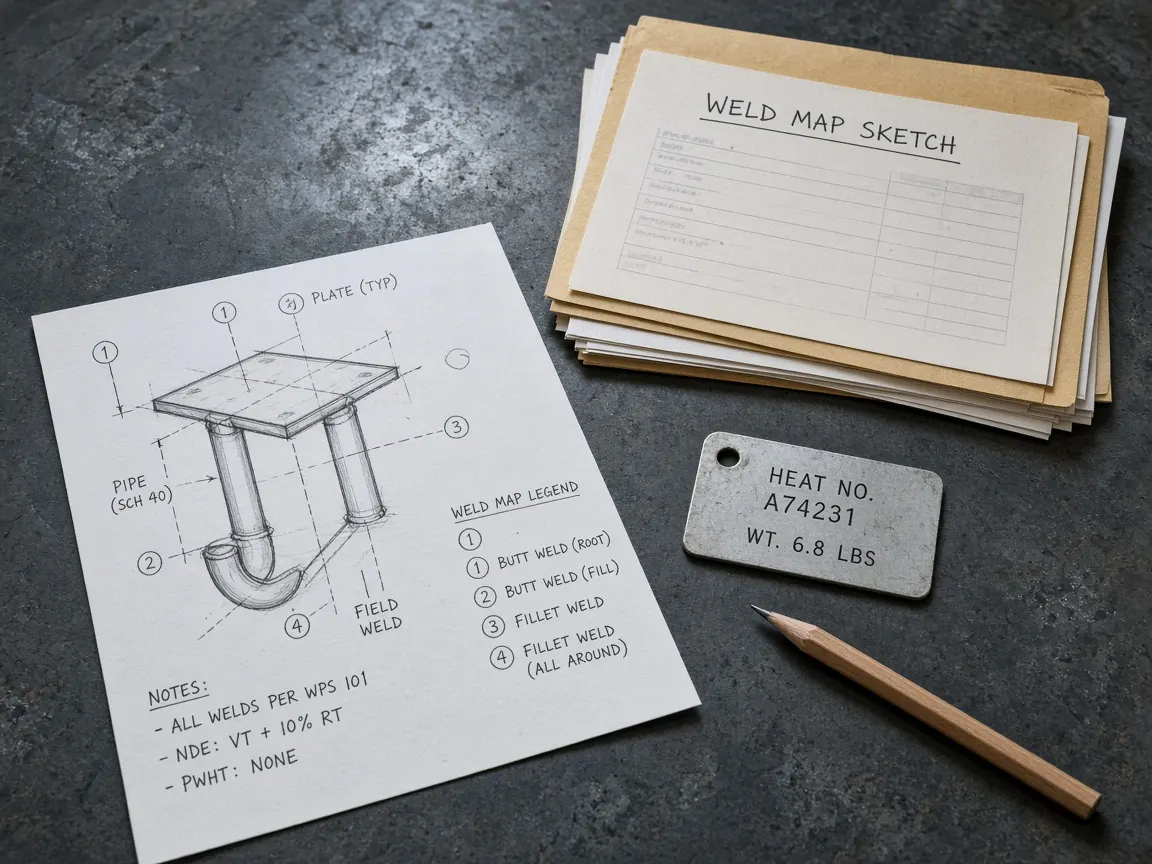 WELD MAP SKETCH
1
PLATE (TYP)
1
3
PIPE
(SCH 40)
2
4
FIELD
WELD
WELD MAP LEGEND
1
1 BUTT WELD (ROOT)
2 BUTT WELD (FILL)
3 FILLET WELD
4 FILLET WELD
(ALL AROUND)
NOTES:
- ALL WELDS PER WPS 101
- NDE: VT + 10% RT
- PWHT: NONE
HEAT NO.
A74231
WT. 6.8 LBS